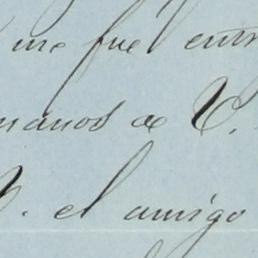 me fue entr
manos de V.
V. el amigo